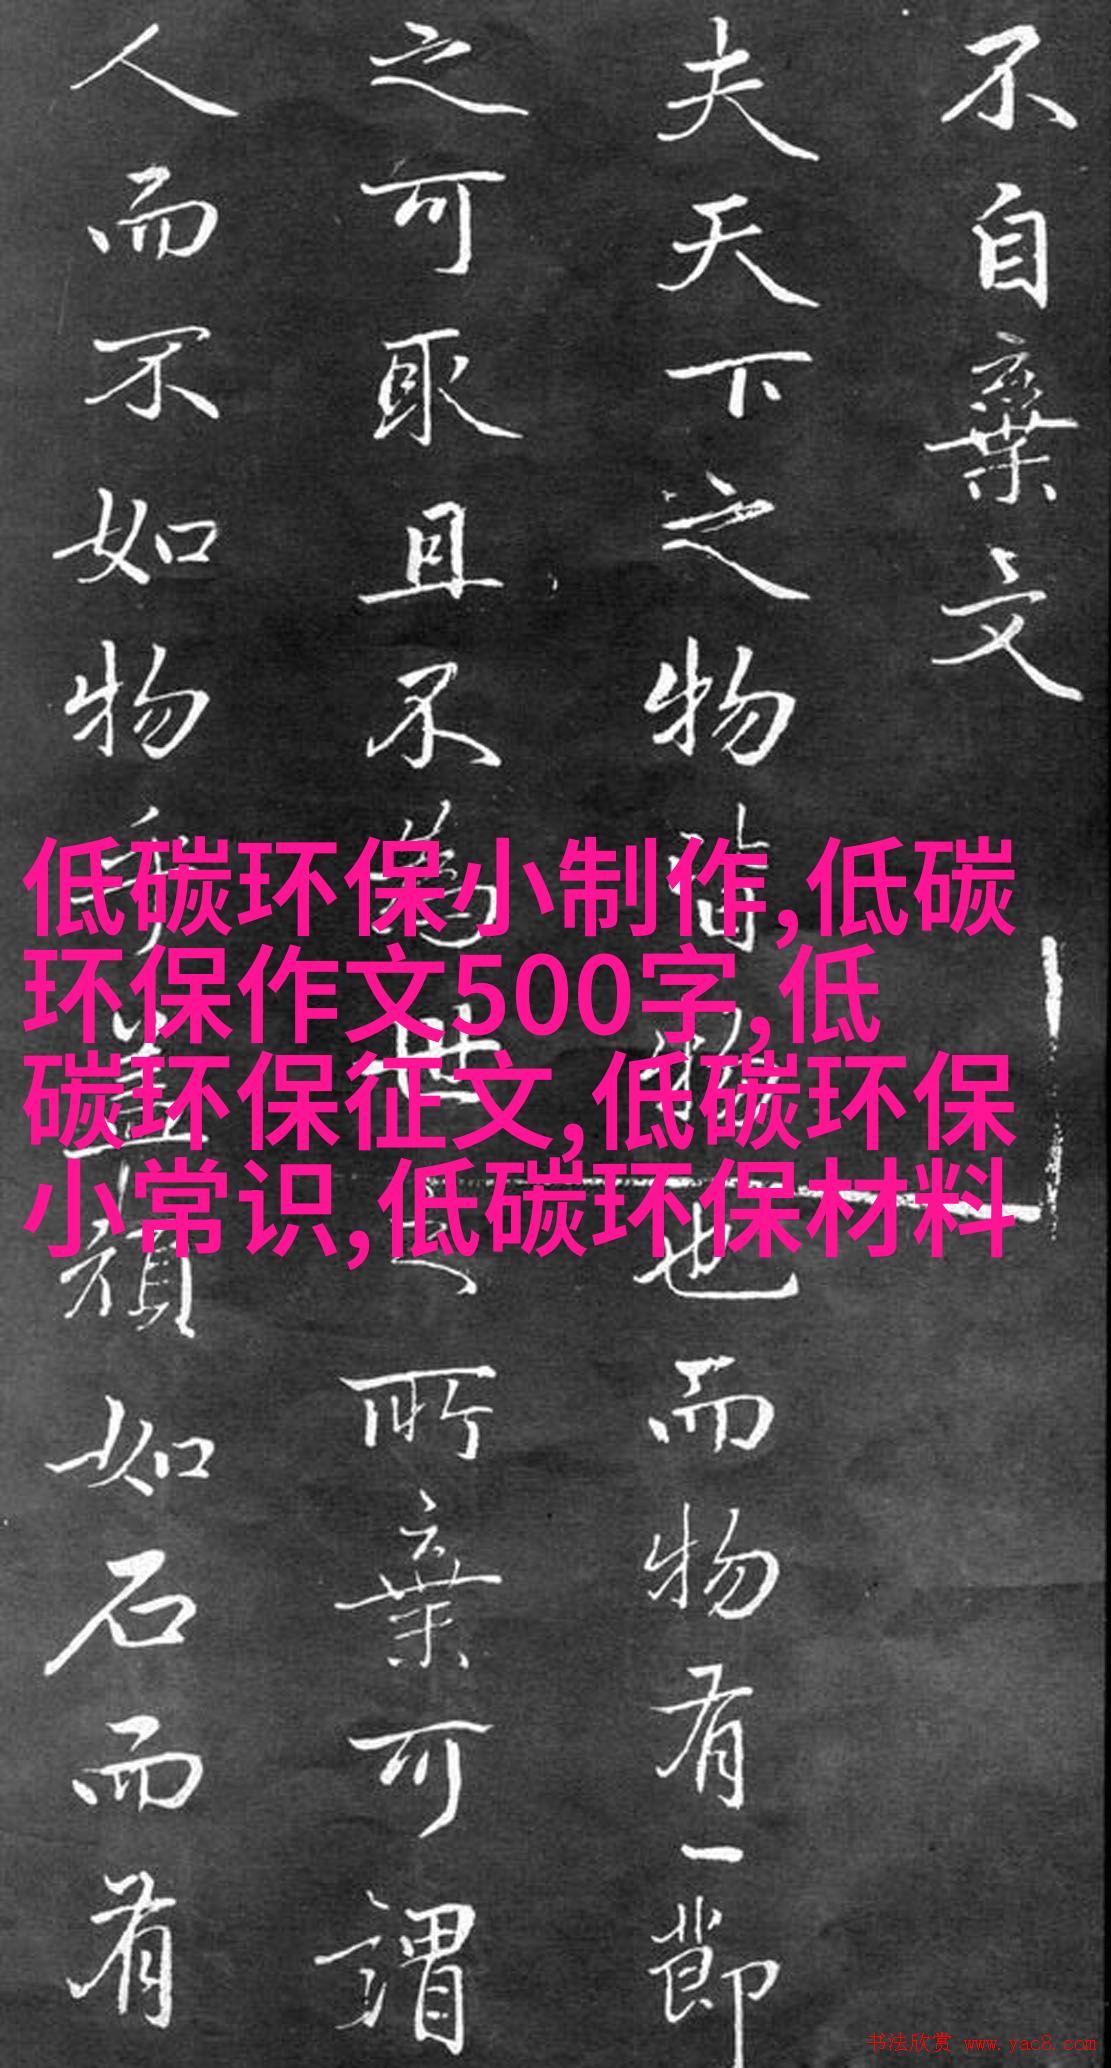 不自棄文
夫天下之物皆物也而物有一節
之可取且不為世之所棄可謂
人而不如物乎蓋頑如石而有
低碳环保小制作,低碳
环保作文500字,低
碳环保征文,低碳环保
小常识,低碳环保材料
书法欣赏 www.yac8.com